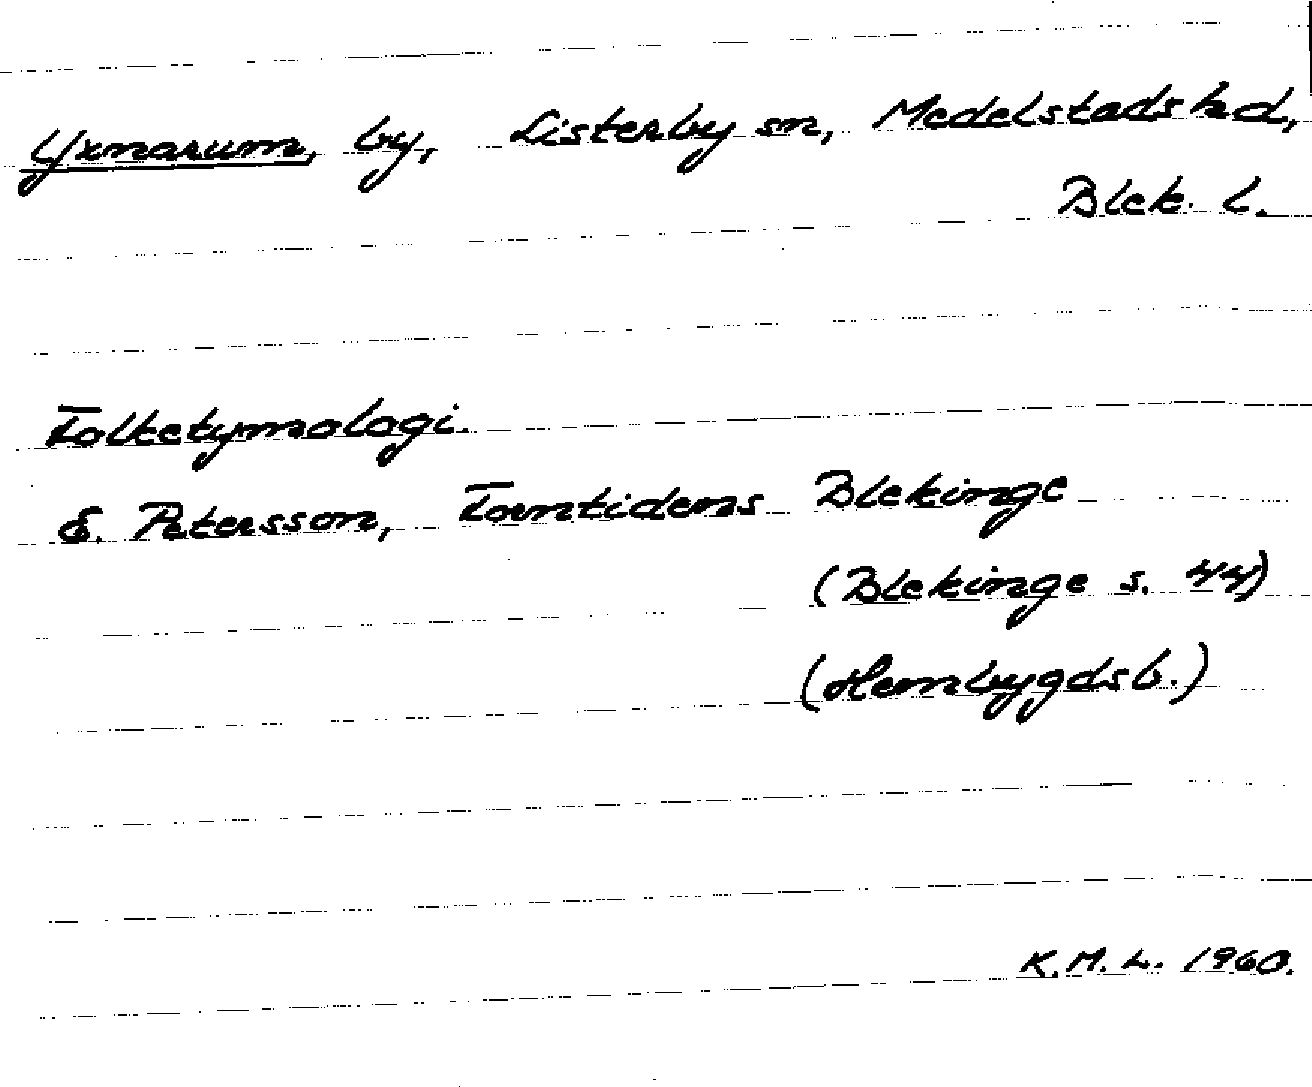 Yxnarum, by, Listerby sn, Medelstads hd,
Blek. l.
Folketymologi.
E. Petersson, Forntidens Blekinge
(Blekinge s. 44)
(Hembygdsb.)
K.M.L. 1960.